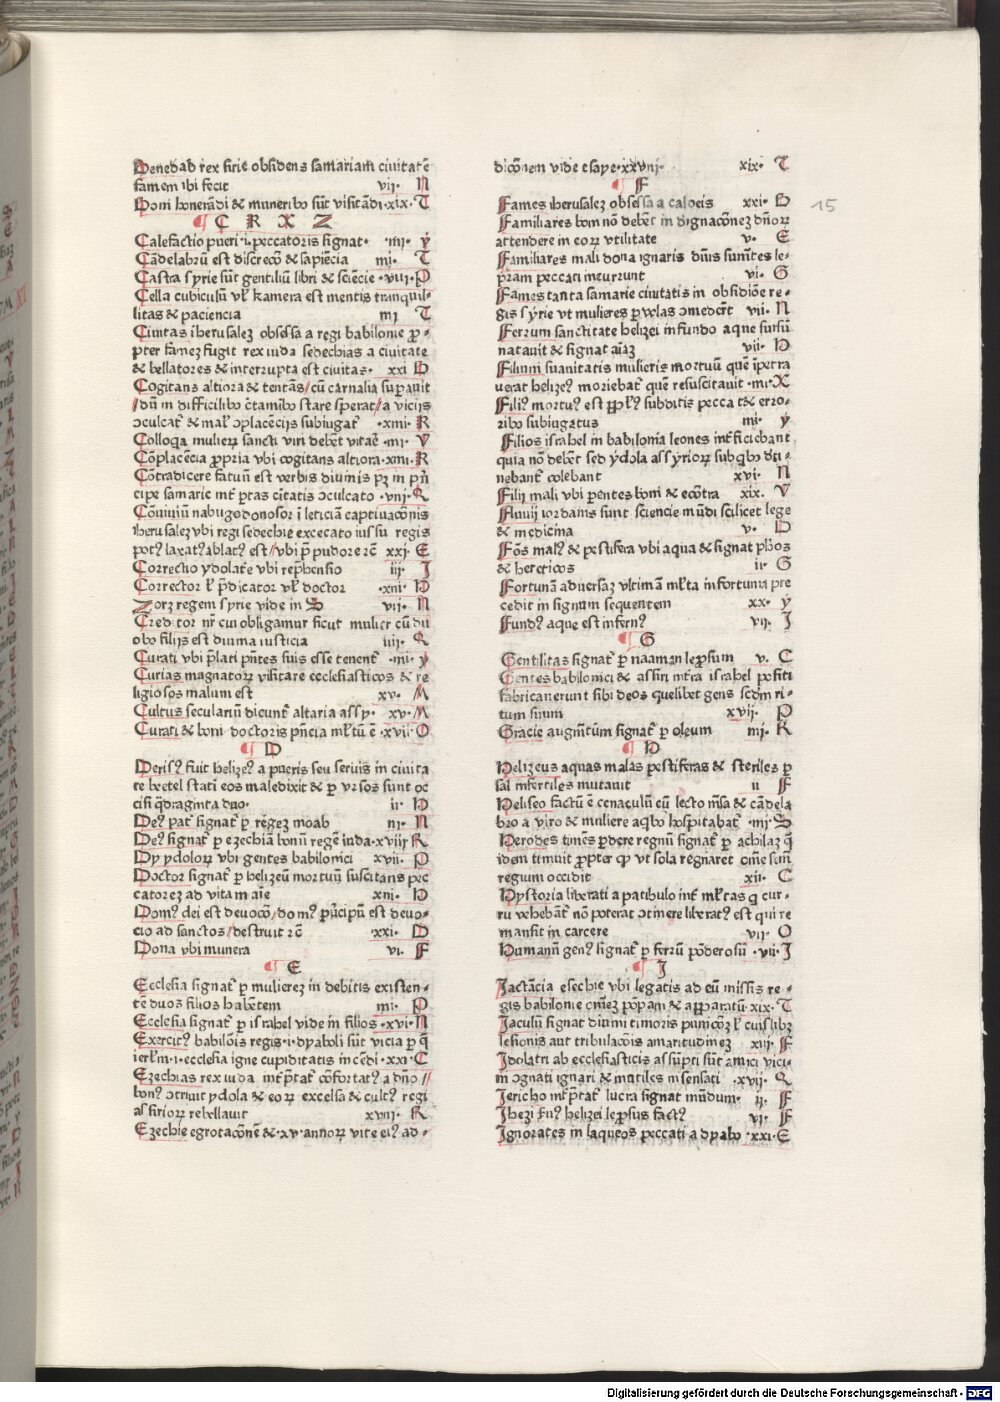 Benedab rex sirie obsidens samariam ciuitatē
famem ibi fecit vij. N
Boni honerādi & muneribꝰ sūt visitādi·xix·T
¶ C K X Z
Calefactio pueri ·i· peccatoris signat· ·iiij· y
Cādelabrū est discreō & sapiēcia iiij· T
Castra syrie sūt gentiliū libri & sciēcie ·viij·P
Cella cubiculū vł kamera est mentis tranquil-
litas & paciencia iiij T
Ciuitas iherusaleꝫ obsessa a regi babilonie ꝓ-
pter fameꝫ fugit rex iuda sedechias a ciuitate
& bellatores & interrupta est ciuitas· xxi B
Cogitans altiora & tentās/cū carnalia supauit
/dū in difficilibꝰ c̄tamibꝰ stare sperat/a vicijs
ꝯculcat̄ & malꝰ ꝯplacēcijs subiugat̄ ·xiiii· R
Colloqa mulieꝝ sancti viri debēt vitaē ·iiij· V
Cōplacēcia ꝓpria vbi cogitans altiora·xiiii·R
Cōtradicere fatuū est verbis diuinis pꝫ in pn̄
cipe samarie int̄ ptas ciētatis ꝯculcato ·vij·Q
Cōuiuiū nabugodonosor ī leticiā captiuacōnis
iherusaleꝫ vbi regi sedechie excecato iussu regis
potꝰ laxatꝰ ablatꝰ est/vbi p̄ pudore ⁊c̄ xxj· E
Correctio ydolatre vbi rephensio iij· J
Corrector ł p̄dicator vł doctor ·xiii· H
Zorꝫ regem syrie vide in B vij· N
Creditor nr̄ cui obligamur sicut mulier cū du
obꝰ filijs est diuina iusticia iiij· Q
Curati vbi p̄lati pn̄tes suis esse tenent̄ ·iiij· y
Curias magnatoꝝ visitare ecclesiasticos & re
ligiosos malum est xv· M
Cultus seculariū dicunt̄ altaria assy· xv· M
Curati & boni doctoris pn̄cia młtū ē ·xvij·O
¶ D
Derisꝰ fuit helizeꝰ a pueris seu seruis in ciuita
te bethel stati eos maledixit & p vrsos sunt oc
cisi qdraginta duo· ij· H
Deꝰ pat̄ signat̄ p regeꝫ moab iij· N
Deꝰ signat̄ p ezechiā bonū regē iuda·xviij R
Dij ydoloꝝ vbi gentes babilonici xvij· P
Doctor signat̄ p helizeū mortuū suscitans pec
catoreꝫ ad vitam aīe xiij· H
Domꝰ dei est deuocō/domꝰ pn̄cipū est deuo-
cio ad sanctos/destruit ⁊c̄ ·xxi· D
Dona vbi munera vi· F
¶ E
Ecclesia signat̄ p muliereꝫ in debitis existen-
tē duos filios habētem iiij· P
Ecclesia signat̄ p israhel vide in filios ·xvi·N
Exercitꝰ babilōis regis·i·dyaboli sūt vicia p q̄
ierłm·i·ecclesia igne cupiditatis incēdi·xxi·C
Ezechias rex iuda int̄ptat̄ cōfortatꝰ a dn̄o//
bonꝰ ꝯtriuit ydola & eoꝝ excelsa & cultꝰ regi
assirioꝝ rebellauit xviij· R
Ezechie egrotacōnē & ·xv·annoꝝ vite eiꝰ ad-
dicōnem vide esaye·xxviij· xix· T
¶ F
Fames iherusaleꝫ obsessa a caldeis xxi· B
Familiares boīni nō debēt in dignacōneꝫ dn̄oꝝ
attendere in eoꝝ vtilitate v· E
Familiares mali dona ignaris dn̄is sumētes le-
pram peccati incurrunt vi· G
Fames tanta samarie ciuitatis in obsidiōe re-
gis syrie vt mulieres p vꝓlas ꝯmederēt vij· N
Ferrum sanctitate helizei in fundo aque sursū
natauit & signat aīaꝫ vij· H
Filium suanitatis mulieris mortuū quē īpetra
uerat helizeꝰ moriebat̄ quē resuscitauit ·iiij·X
Filiꝰ mortuꝰ est ppłꝰ subditis peccatꝭ & erro-
ribꝰ subiugatus iiij· y
Filios israhel in babilonia leones int̄ficiebant
quia nō debēt sed ydola assyrioꝝ sub qbꝰ de-
nebant̄ colebant xvi· N
Filij mali vbi p̄entes boni & ecōtra xix. V
Fluuij iordanis sunt sciencie mūdi scilicet lege
& medicina v· D
Fōs malꝰ & pestifera vbi aqua & signat phos
& hereticos ij· G
Fortunā aduersaꝫ vltimā młta infortunia pre
cedit in signum sequentem xx· y
Fundꝰ aque est infernꝰ vij· J
¶ G
Gentilitas signat̄ p naaman leprosum v· C
Gentes babilonici & assiri intra israhel positi
fabricauerunt sibi deos quelibet gens scdm ri-
tum suum xvij· P
Gracie augmētum signat̄ p oleum iiij· R
¶ H
Helizeus aquas malas pestiferas & steriles p
sal infertiles mutauit ij F
Heliseo factū ē cenaculū cū lecto mēsa & cādela
bro a viro & muliere aqbo hospitabat̄ ·iiij·B
Herodes timēs pdere regnū signat̄ p athilaꝫ q̄
idem timuit ꝓpter qd vt sola regnaret om̄e suū
regium occidit xij· C
Hystoria liberati a patibulo int̄ młtas q cur-
ru vehebāt̄ nō poterat ꝯtinere liberatꝰ est qui re
mansit in carcere vij· O
Humanū genꝰ signat̄ p ferrū pōderosū ·vij·J
¶ J
Jactācia esechie vbi legatis ad eū missis re-
gis babilonie om̄eꝫ pōpam & apparatū·xix·T
Jaculū signat diuini timoris punicōꝫ ł cuislibꝫ
lesionis aut tribulacōis amaritudineꝫ xiij· F
Jdolatri ab ecclesiasticis assūpti sūt amici vici-
ni ꝯgnati ignari & inutiles insensati ·xvij· Q
Jericho int̄ptat̄ lucra signat mūdum· ij· F
Jhezi sn̄ꝰ helizei leprosus factꝰ vj· F
Jgnorātes in laqueos peccati a dyabo ·xxi·E
15
Digitalisierung gefördert durch die Deutsche Forschungsgemeinschaft · DFG